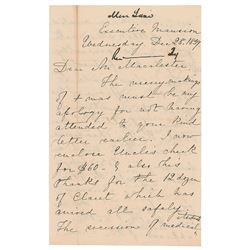 Executive Mansion
Wednesday Dec 28. 189
Dear Mr Macalester
The merry making
of Xmas must be my
apology for not having
attended to your kind
letter earlier. I now
enclose Uncles check
for $60- & also his
thanks for the 12 dozen
of Claret which has
arrived all safely
The accession of medical